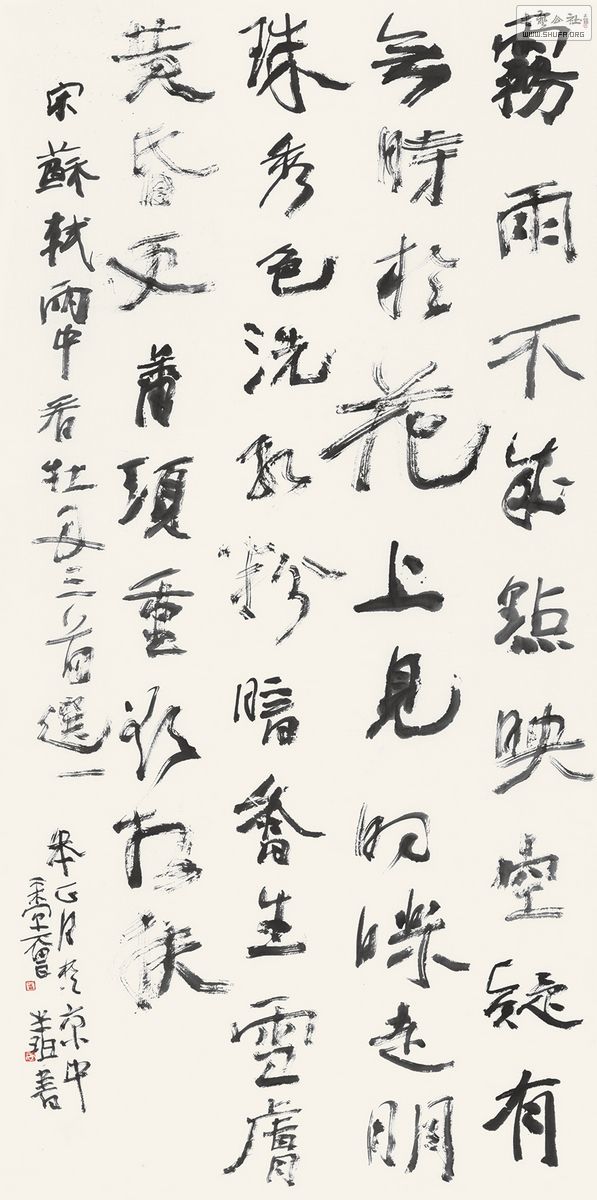 霧雨不成點映空疑有
無時於花上見的皪走明
珠秀色洗紅粉暗香生雪膚
黄昏更蕭頭重欲相扶
宋蘇軾雨中看牡丹三首選一
正月於京中
書
WWW.SHUFA.ORG